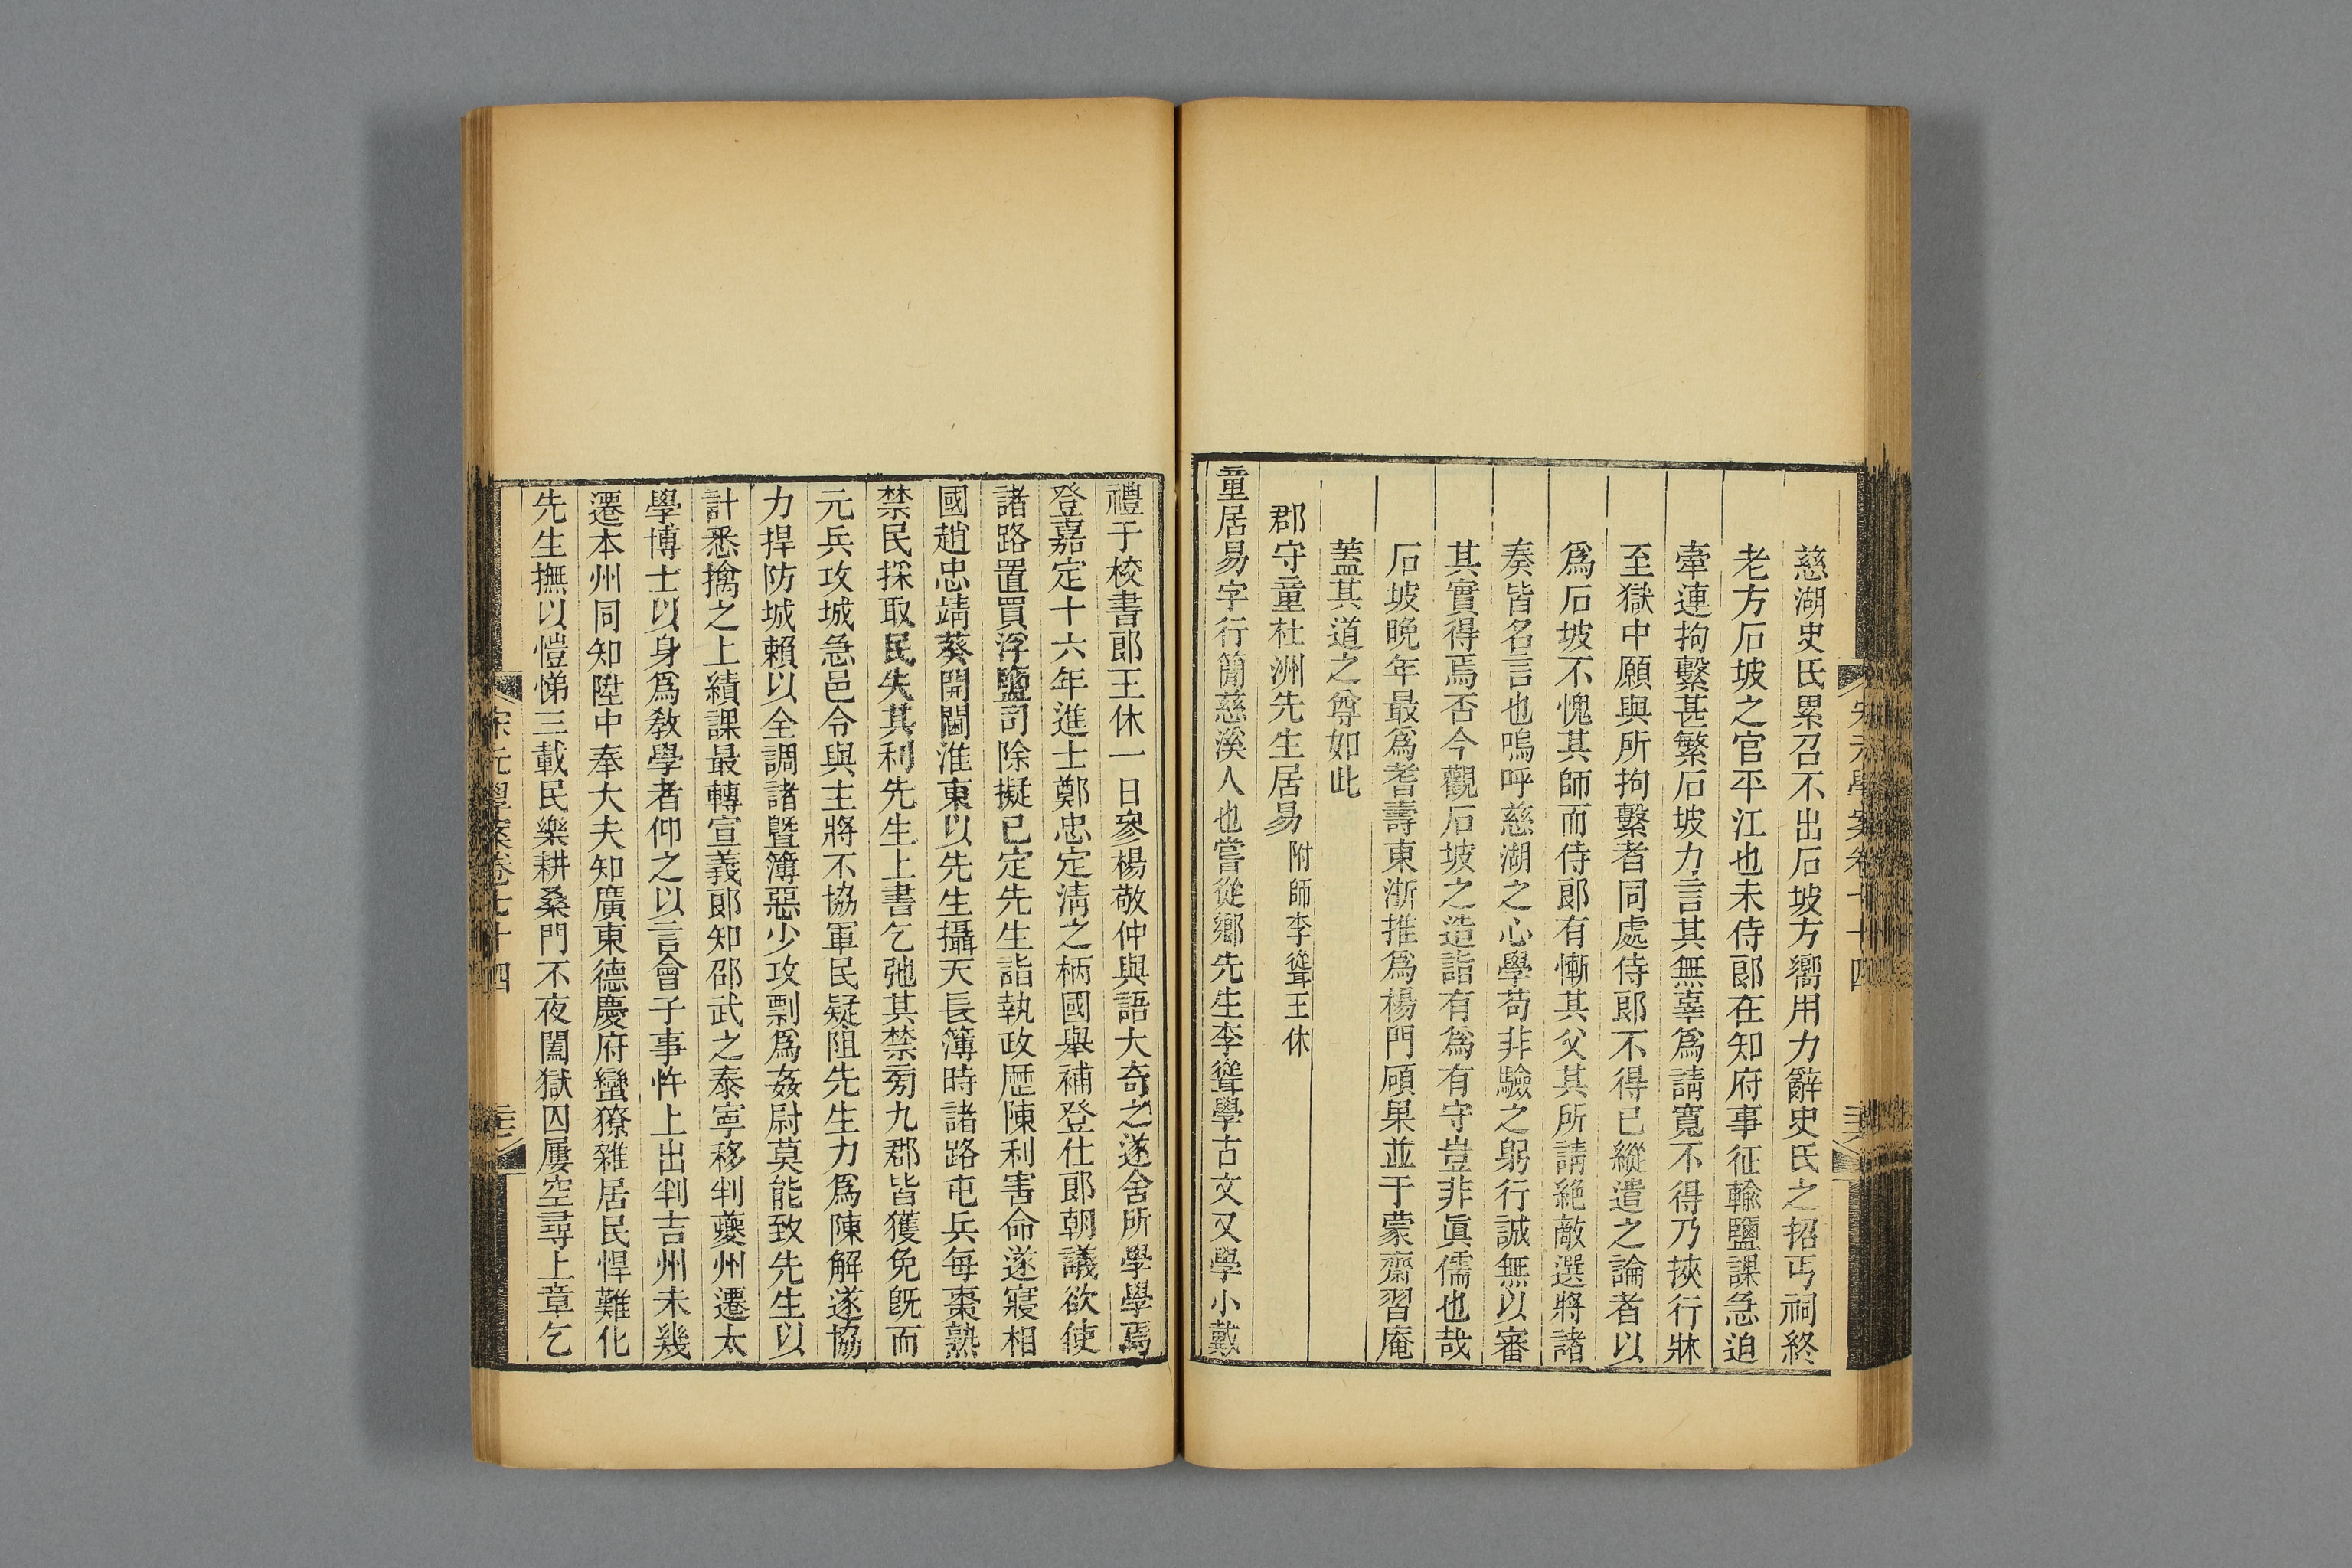 慈湖史氏累召不出石坡方嚮用力辭史氏之招丐祠終
老方石坡之官平江也未侍郎在知府事征輸鹽課急迫
牽連拘繫甚繁石坡力言其無辜爲請寬不得乃挾行牀
至獄中願與所拘繫者同處侍郎不得已縱遣之論者以
爲石坡不愧其師而侍郎有慚其父其所請絶敵選將諸
奏皆名言也嗚呼慈湖之心學苟非驗之躬行誠無以審
其實得焉否今觀石坡之造詣有爲有守豈非眞儒也哉
石坡晚年最爲耆壽東浙推爲楊門碩果並于蒙齋習庵
蓋其道之尊如此
郡守童杜洲先生居易附師李聳王休
童居易字行簡慈溪人也嘗從鄉先生李聳學古文又學小戴
宋元學案卷七十四
禮于校書郎王休一日參楊敬仲與語大奇之遂舍所學學焉
登嘉定十六年進士鄭忠定淸之柄國舉補登仕郎朝議欲使
諸路置買浮鹽司除擬已定先生詣執政歷陳利害命遂寢相
國趙忠靖葵開閫淮東以先生攝天長簿時諸路屯兵每棗熟
禁民採取民失其利先生上書乞弛其禁旁九郡皆獲免旣而
元兵攻城急邑令與主將不協軍民疑阻先生力爲陳解遂協
力捍防城賴以全調諸曁簿惡少攻剽爲姦尉莫能致先生以
計悉擒之上績課最轉宣義郎知邵武之泰寧移判夔州遷太
學博士以身爲敎學者仰之以言會子事忤上出判吉州未幾
遷本州同知陞中奉大夫知廣東德慶府蠻獠雜居民悍難化
先生撫以愷悌三載民樂耕桑門不夜闔獄囚屢空尋上章乞
宋元學案卷七十四